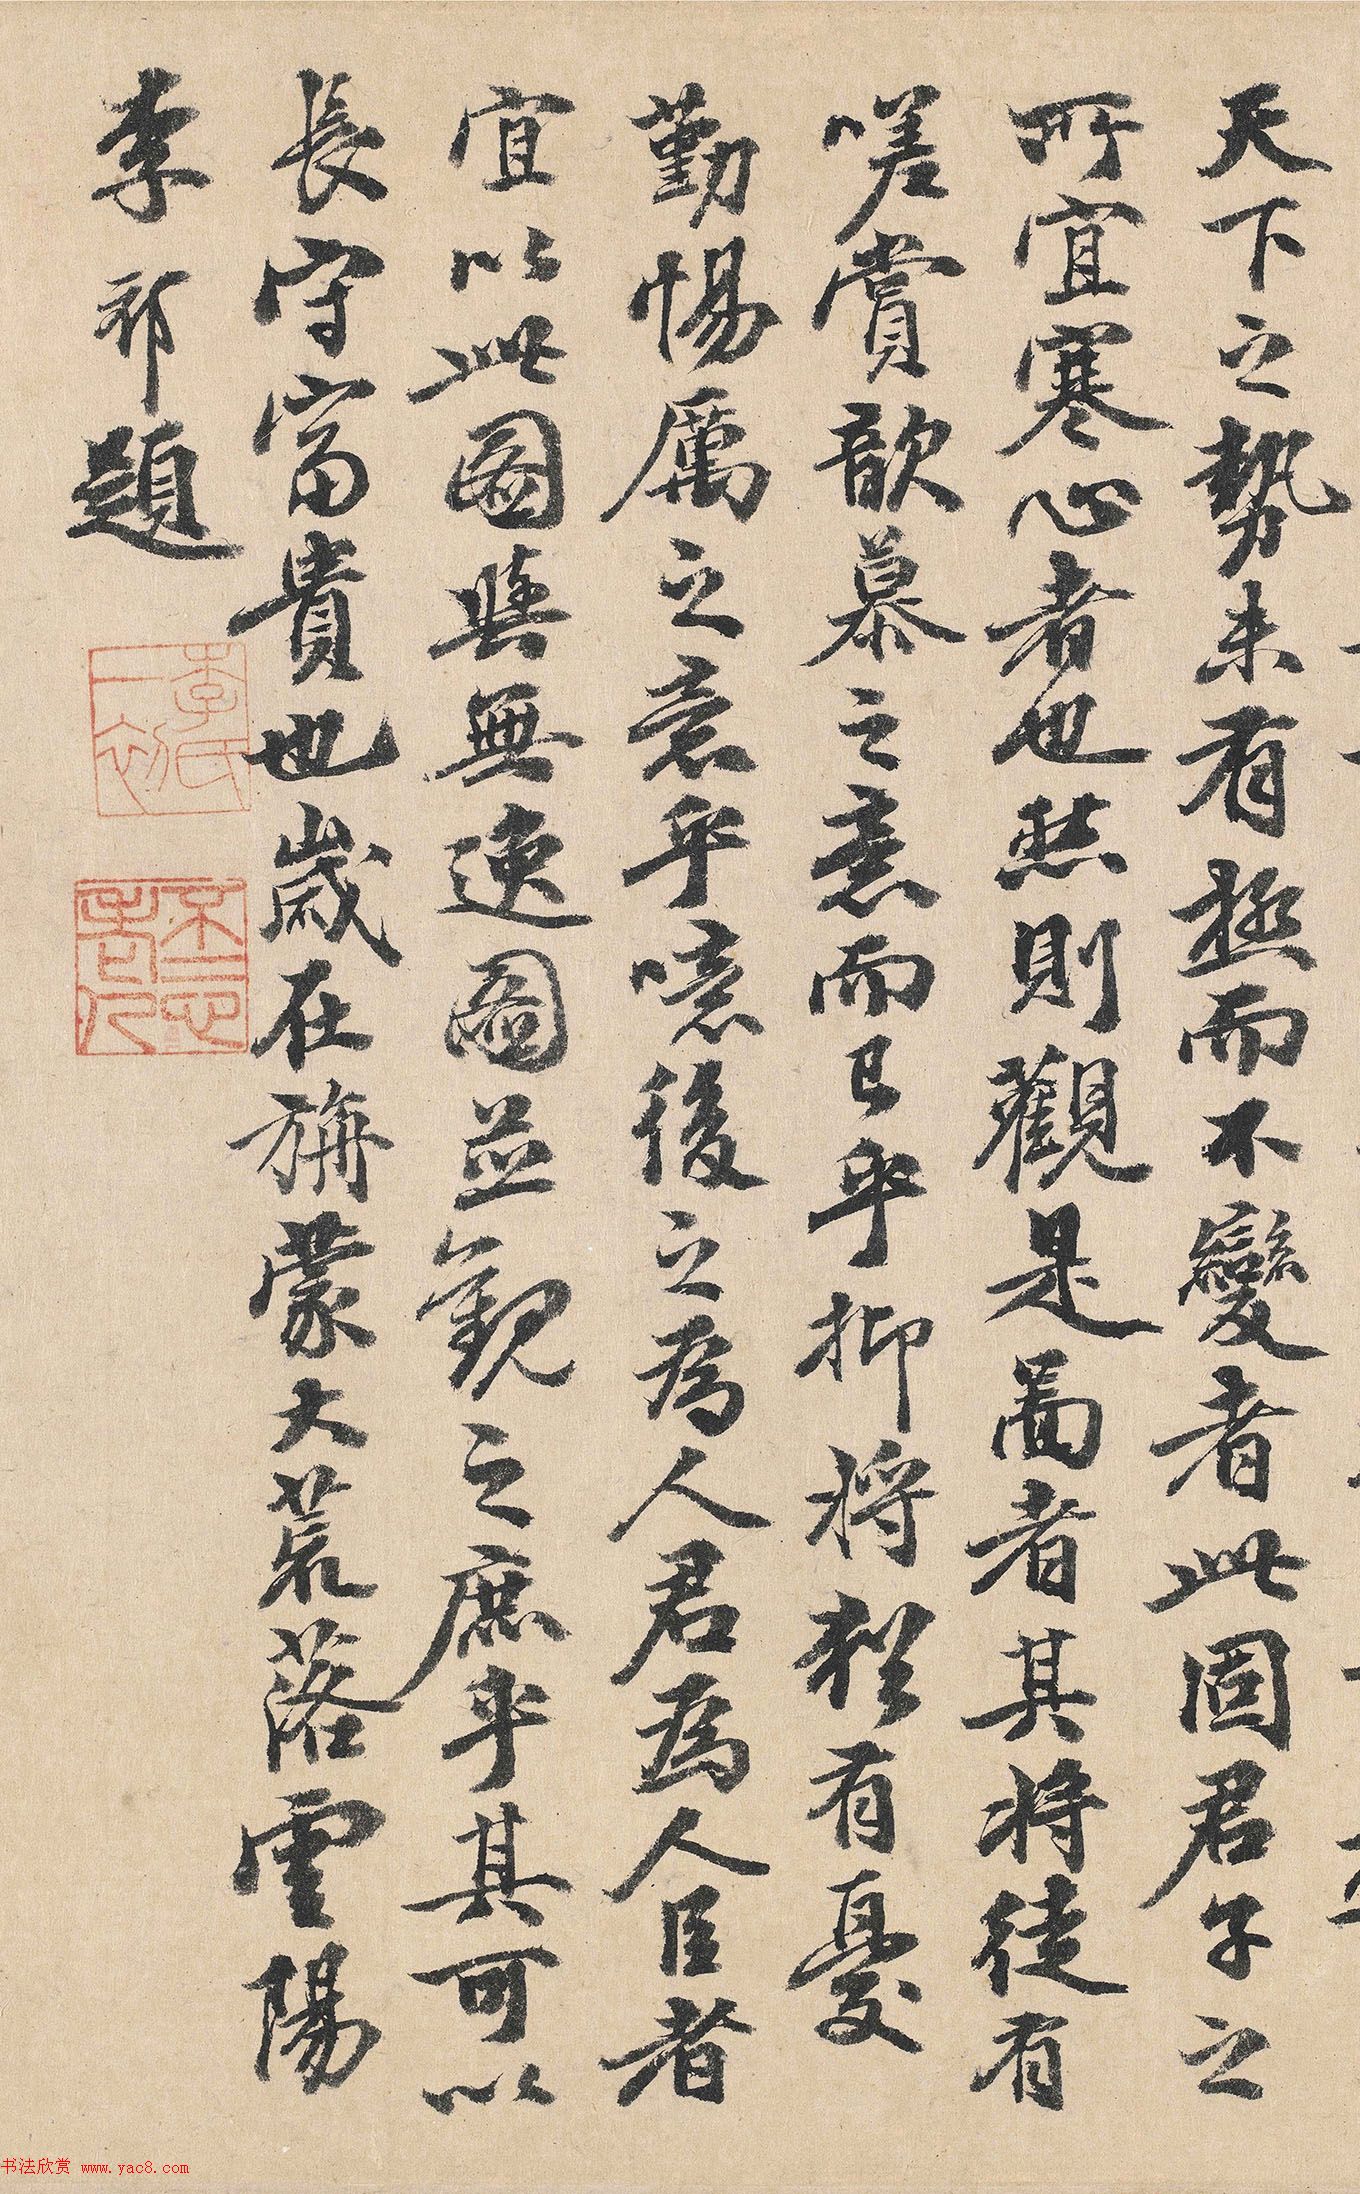 天下之勢未有極而不變者此固君子之
所宜寒心者也然則觀是啚者其將徒有
嗟賞歆慕之意而已乎抑將猶有憂
勤惕厲之意乎噫後之為人君為人臣者
宜以此圖與無逸圖並觀之庶乎其可以
長守富貴也歲在旃蒙大荒落雲陽
李祁題
李氏一初
不二心老人
书法欣赏 www.yac8.com